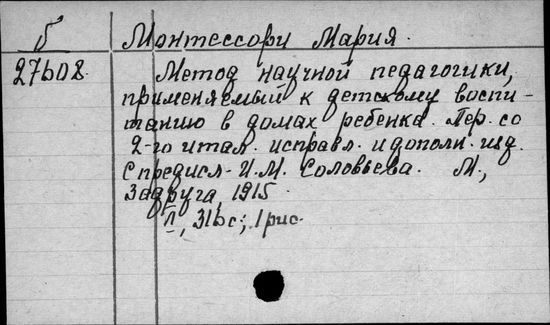 б Монтессори Мария.
27608. Метод научной педагогики,
применяемый к детскому воспи-
танию в домах ребенка. Пер. со
2-го итал. исправл. и дополн. изд.
С предисл. И. М. Соловьева. М.,
Задруга, 1915.
II, 316 с; 1 рис.